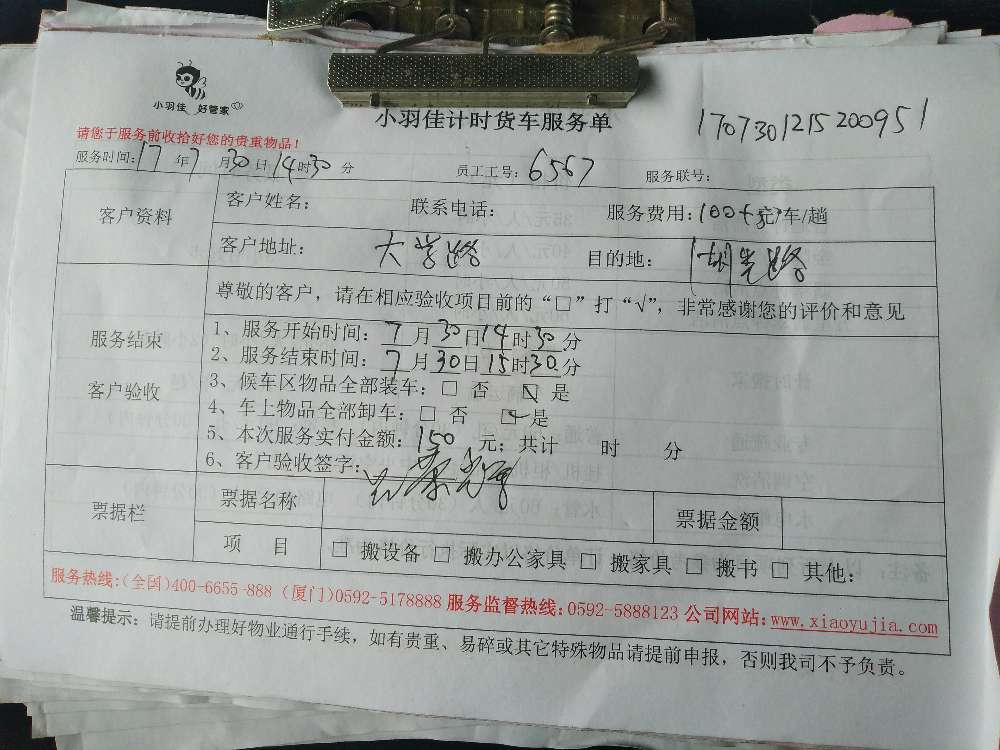 小羽佳 好管家
小羽佳计时货车服务单
1707301215200951
请您于服务前收拾好您的贵重物品！
服务时间：17年7月30日14时30分 员工工号：6567 服务联号：
客户资料
客户姓名： 联系电话： 服务费用：100+50元/车/趟
客户地址： 大学路 目的地： 湖光路
服务结束
客户验收
尊敬的客户，请在相应验收项目前的“□”打“√”，非常感谢您的评价和意见
1、服务开始时间：7月30日14时30分
2、服务结束时间：7月30日15时30分
3、候车区物品全部装车：□ 否 ☑ 是
4、车上物品全部卸车：□ 否 ☑ 是
5、本次服务实付金额：150 元；共计 时 分
6、客户验收签字：
票据栏
票据名称 票据金额
项 目 □ 搬设备 □ 搬办公家具 □ 搬家具 □ 搬书 □ 其他：
服务热线：(全国)400-6655-888 (厦门)0592-5178888 服务监督热线：0592-5888123 公司网站：www.xiaoyujia.com
温馨提示：请提前办理好物业通行手续，如有贵重、易碎或其它特殊物品请提前申报，否则我司不予负责。